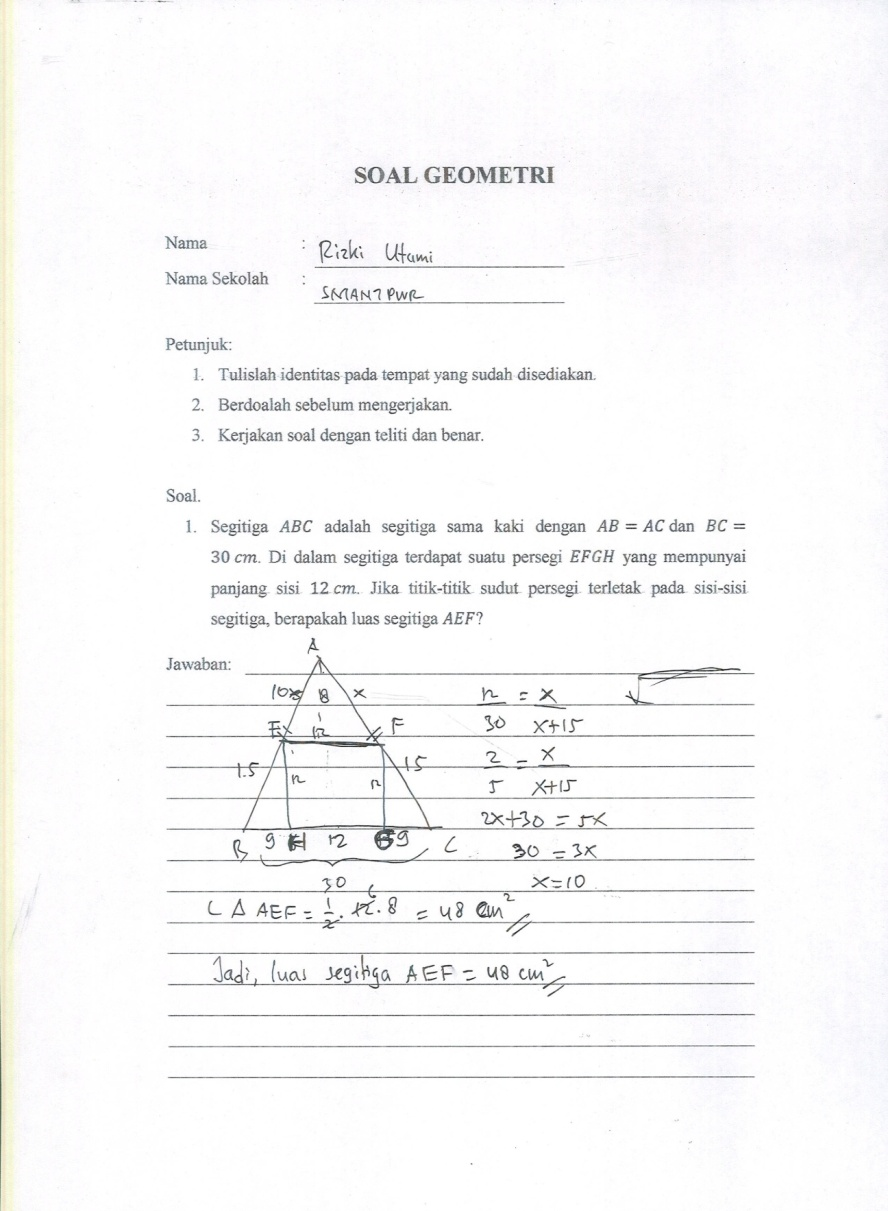 SOAL GEOMETRI
Nama : Rizki Utami
Nama Sekolah : SMAN 7 PWR
Petunjuk:
1. Tulislah identitas pada tempat yang sudah disediakan.
2. Berdoalah sebelum mengerjakan.
3. Kerjakan soal dengan teliti dan benar.
Soal.
1. Segitiga ABC adalah segitiga sama kaki dengan AB = AC dan BC =
30 cm. Di dalam segitiga terdapat suatu persegi EFGH yang mempunyai
panjang sisi 12 cm. Jika titik-titik sudut persegi terletak pada sisi-sisi
segitiga, berapakah luas segitiga AEF?
A
Jawaban:
10 8 x
E 12 F
15 12 12 15
B 9 H 12 G 9 C
30
12/30 = x/x+15
2/5 = x/x+15
2x+30 = 5x
30 = 3x
x=10
L Δ AEF = 1/2 . 12 . 8 = 48 cm²
Jadi, luas segitiga AEF = 48 cm²